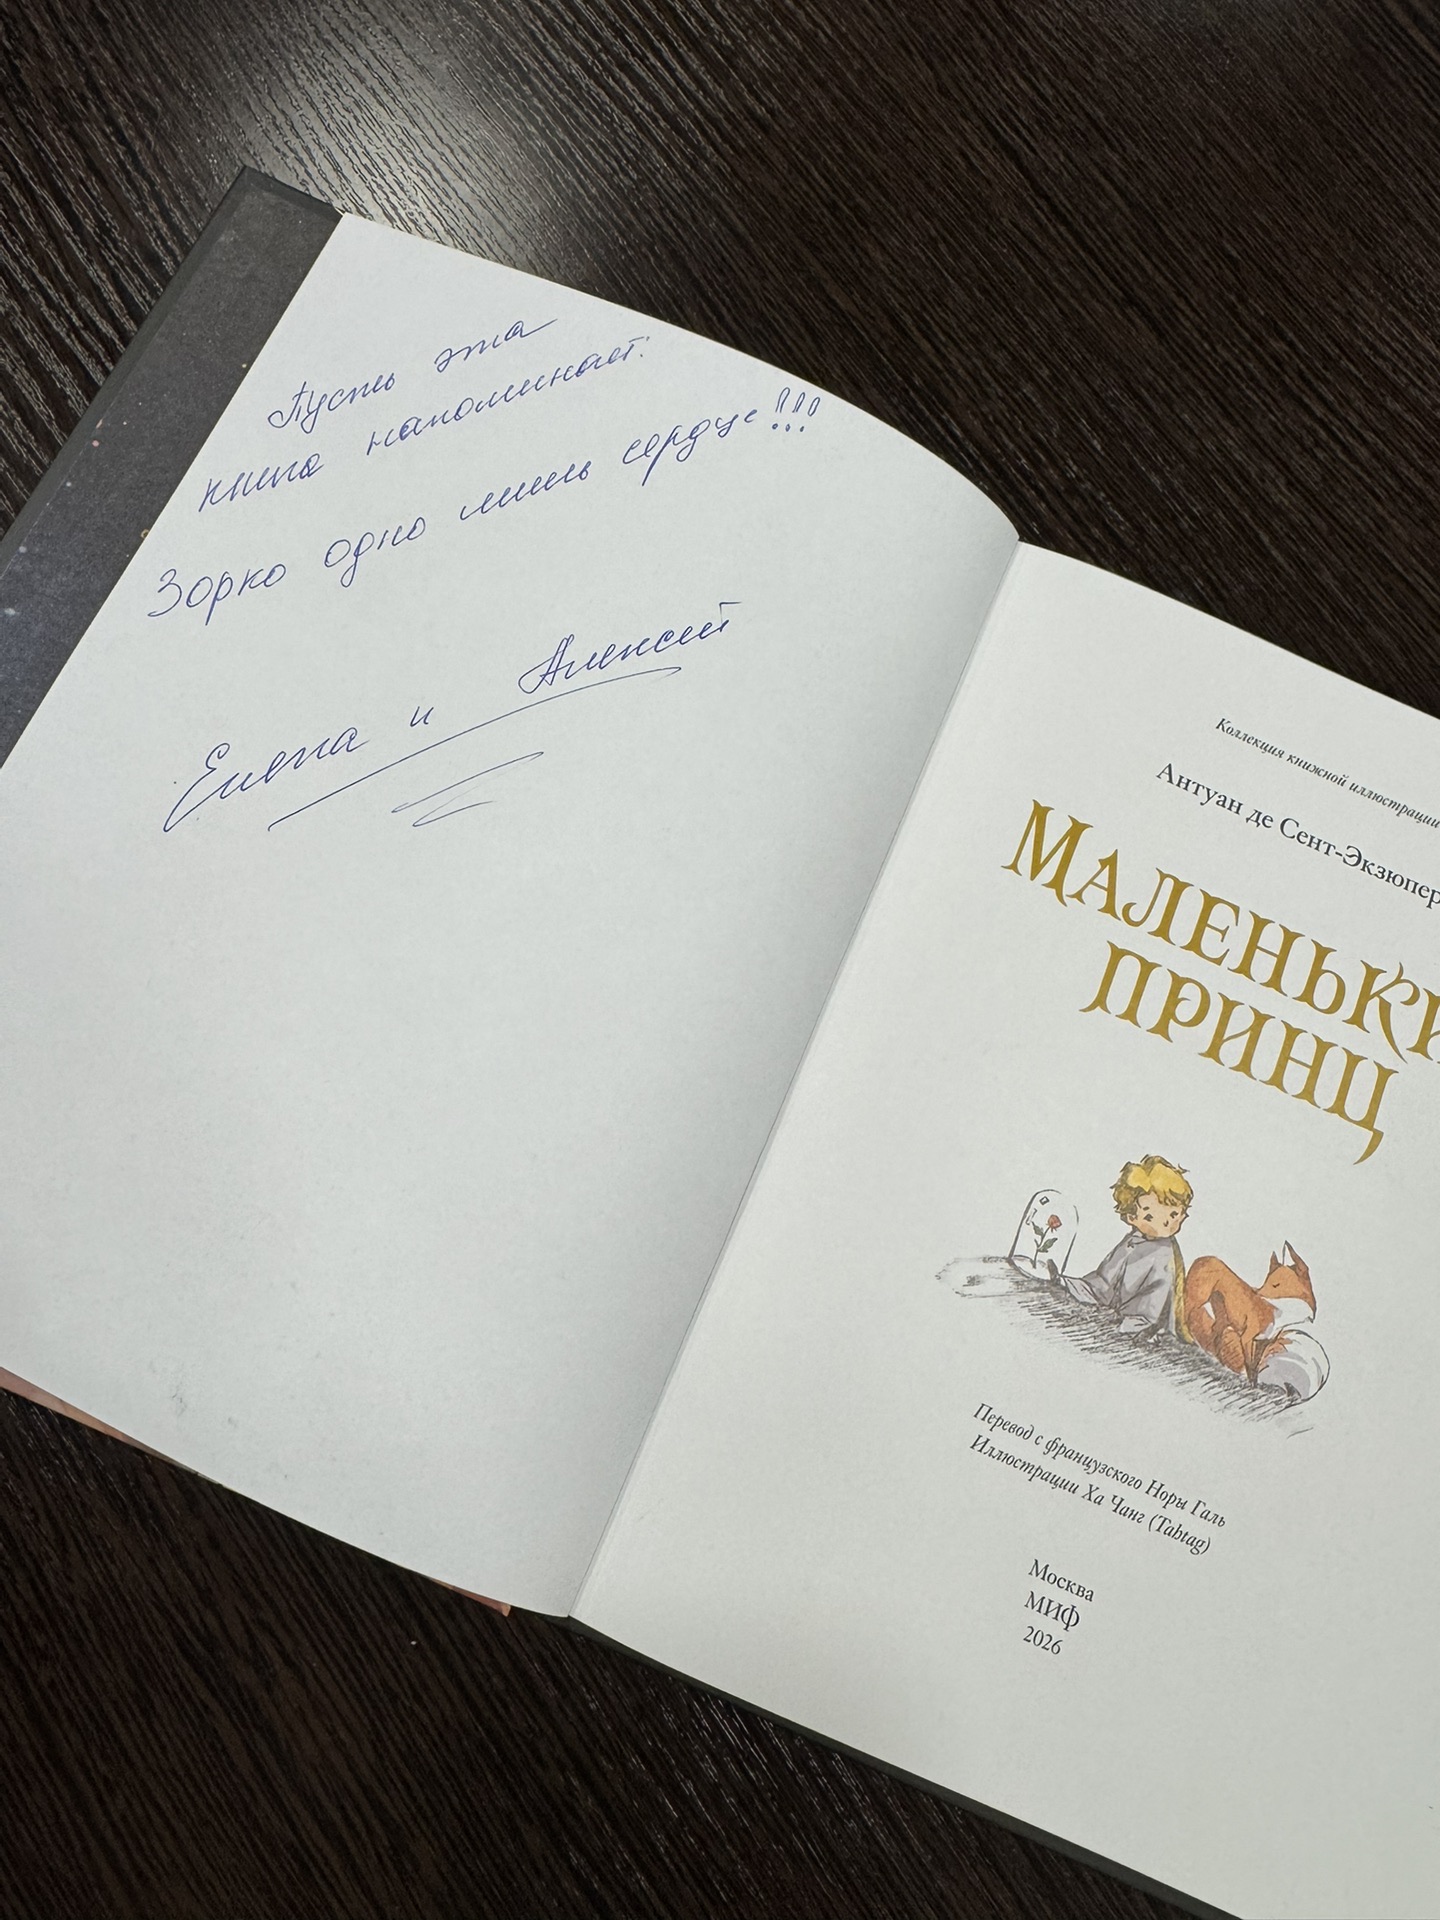 Пусть эта
книга напоминает:
Зорко одно лишь сердце!!!
Елена и Алексей
Коллекция книжной иллюстрации
Антуан де Сент-Экзюпер
МАЛЕНЬКИ
ПРИНЦ
Перевод с французского Норы Галь
Иллюстрации Ха Чанг (Tahtag)
Москва
МИФ
2026